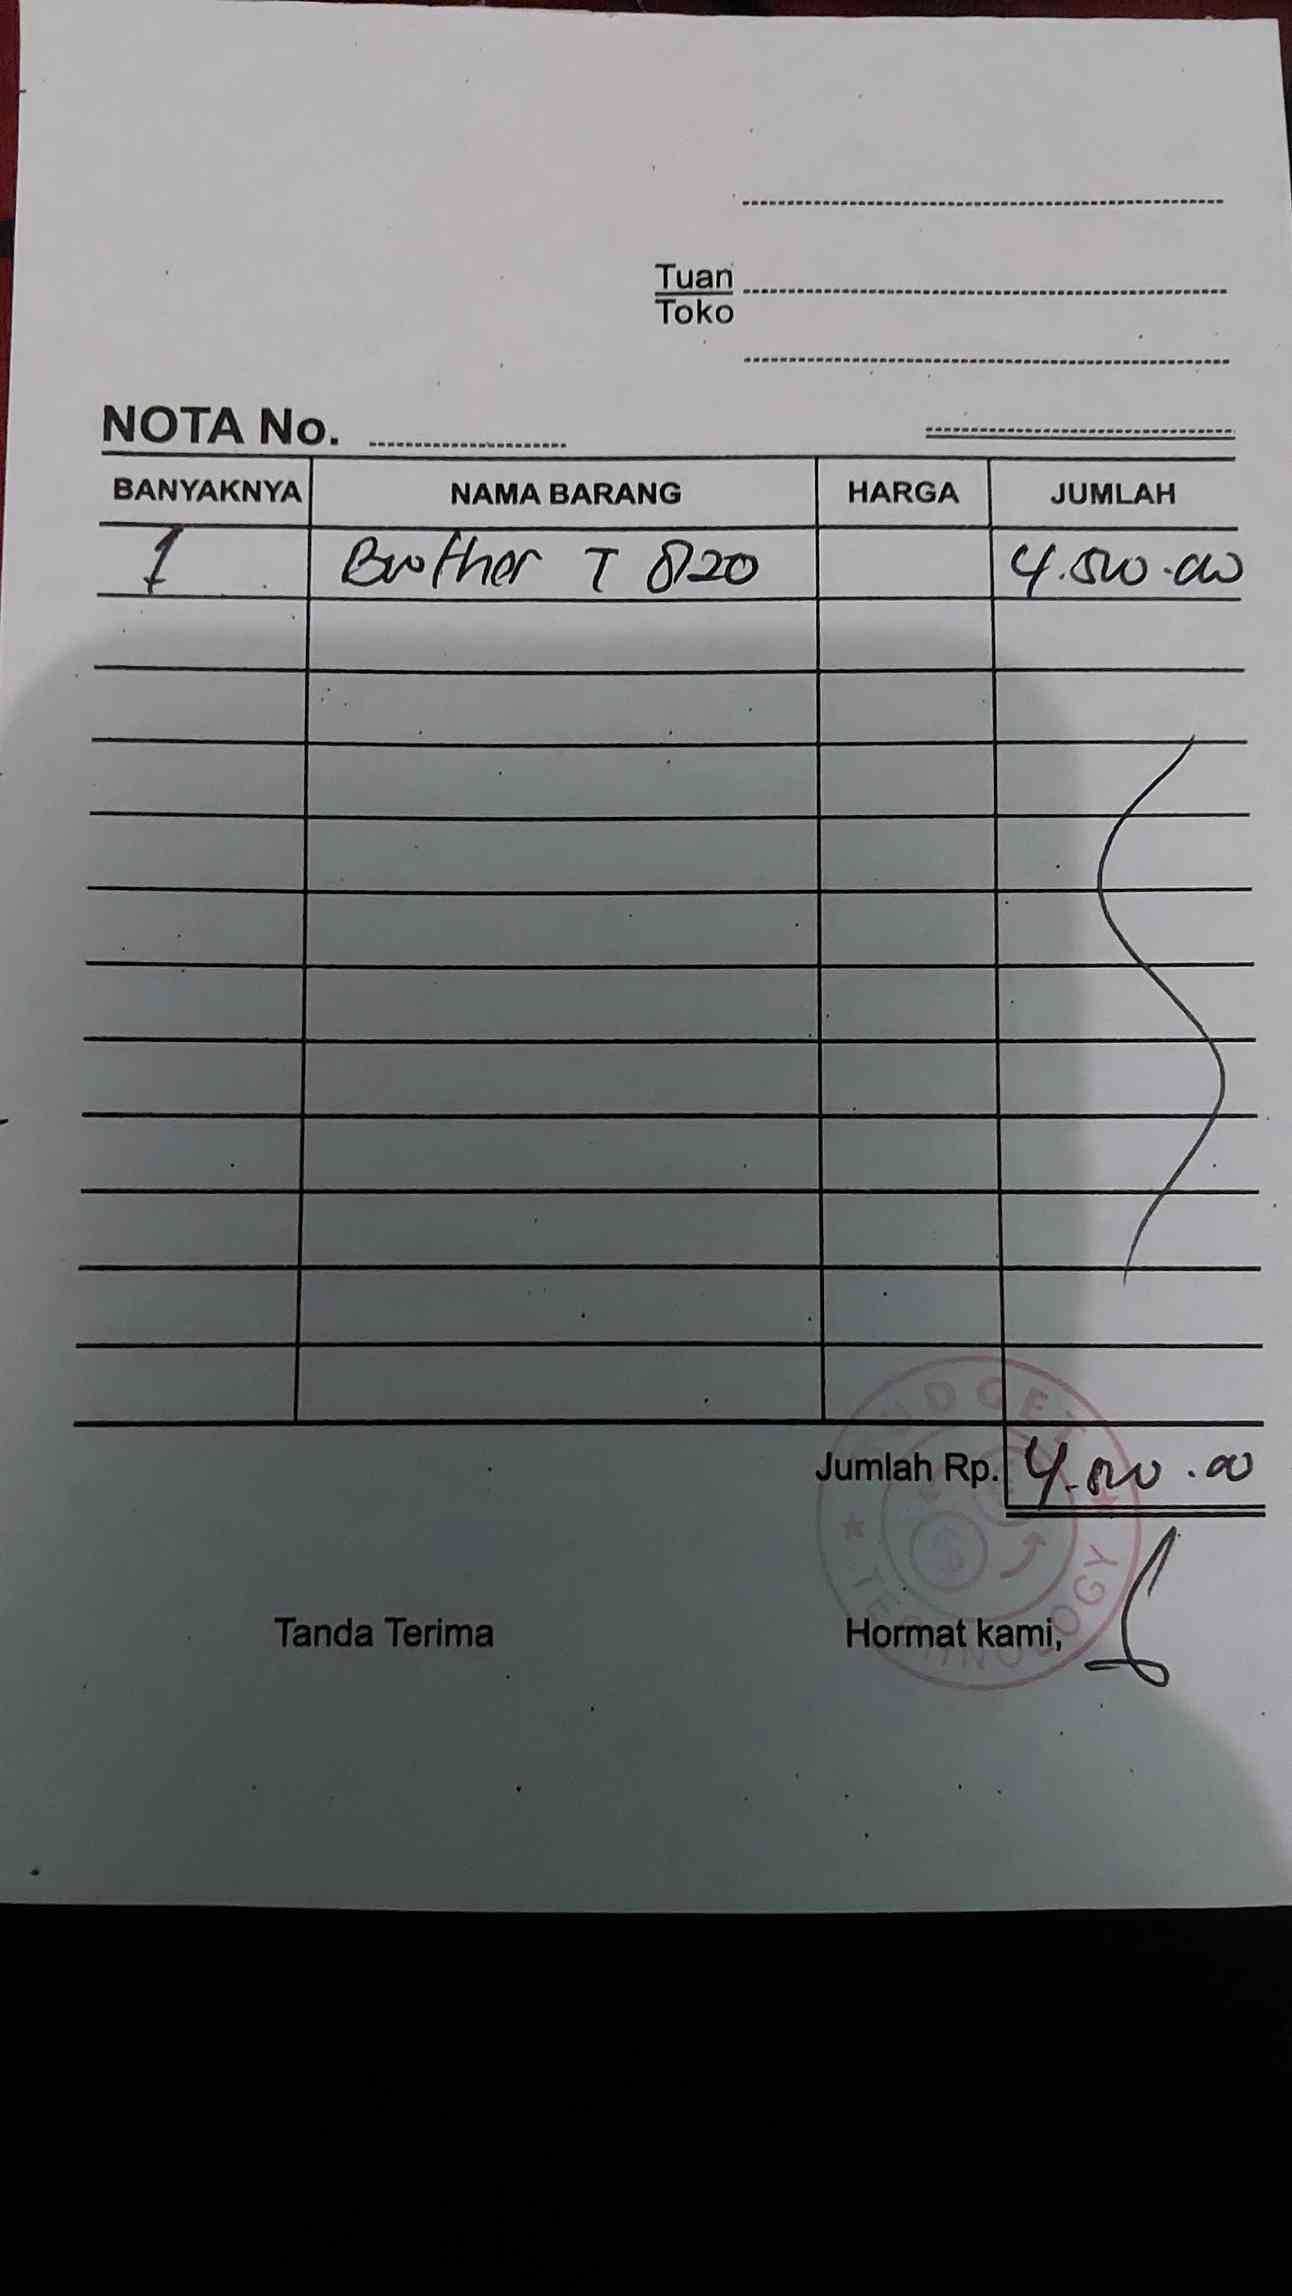 Tuan
Toko
NOTA No.
BANYAKNYA NAMA BARANG HARGA JUMLAH
1 Brother T 820 4.500.000
Jumlah Rp. 4.500.00
BUDGET TECHNOLOGY
Tanda Terima Hormat kami,